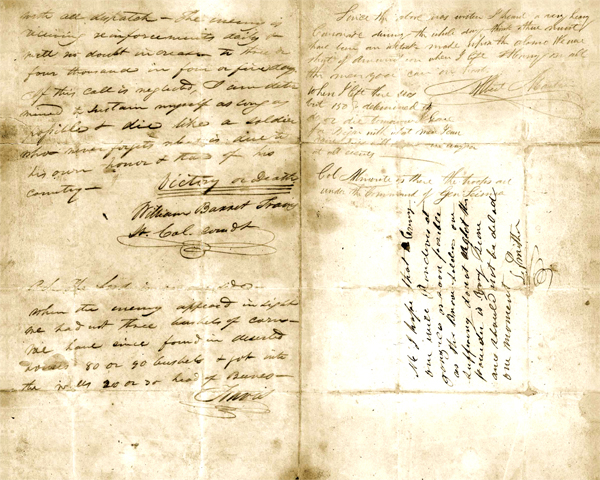 with all dispatch — The enemy is
receiving reinforcements daily &
will no doubt increase to three or
four thousand in four or five days.
If this call is neglected, I am deter
mined to sustain myself as long as
possible & die like a soldier
who never forgets what is due to
his own honor & that of his
country —
Victory or Death
William Barret Travis
Lt. Col. comdt
P.S. The Lord is on our side —
When the enemy appeared in sight
we had not three bushels of corn —
We have since found in deserted
houses 80 or 90 bushels & got into
the walls 20 or 30 head of Beeves —
Travis
Since the above was written I heard a very heavy
Cannonade during the whole day think there must
have been an attack made upon the alamo We were
short of Ammunition when I left Hurry on all
the men you can in haste
Albert Martin
When I left there was
but 150 determined to
do or die tomorrow I leave
for Bejar with what men I can
at all events
Col Almonte is there the troops are
under the Command of Gen Seisma
Nb I hope that Every
one will Randeves at
gonzales as soon poseble
as the Brave Solders are
suffering do not neglect the
powder is very scarce
and should not be delad
one moment
L. Smither